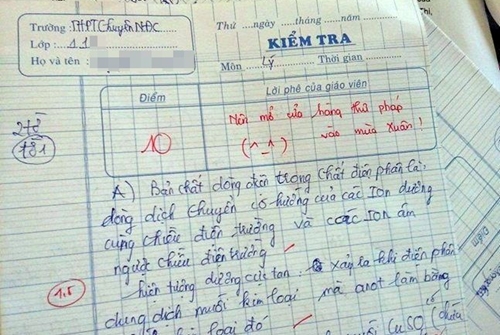 Trường :THPT Chuyên NĐC
Lớp : 11
Họ và tên :
Thứ ....ngày ......tháng......năm......
KIỂM TRA
Môn Lý Thời gian
Điểm
Lời phê của giáo viên
10
Nên mở cửa hàng thư pháp
(^_^) vào mùa xuân !
2 đề
181
A) Bản chất dòng điện trong chất điện phân là:
dòng dịch chuyển có hướng của các ION dương
cùng chiều điện trường và các ION âm
ngược chiều điện trường
1,5
hiện tượng dương cực tan: xảy ra khi điện phân
dung dịch muối kim loại mà anot làm bằng
loại đó
muối CuSO4
Điểm